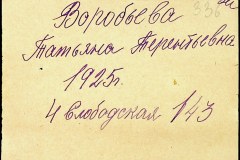 336
Воробьева
Татьяна Терентьевна
1925г.
4 слободская 143